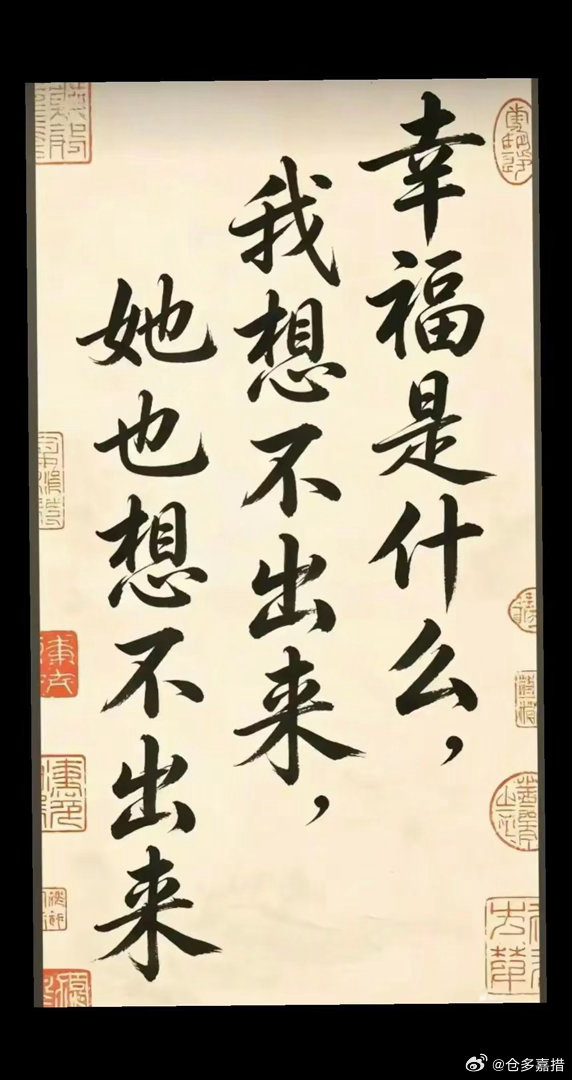 幸福是什么，
我想不出来，
她也想不出来
@仓多嘉措